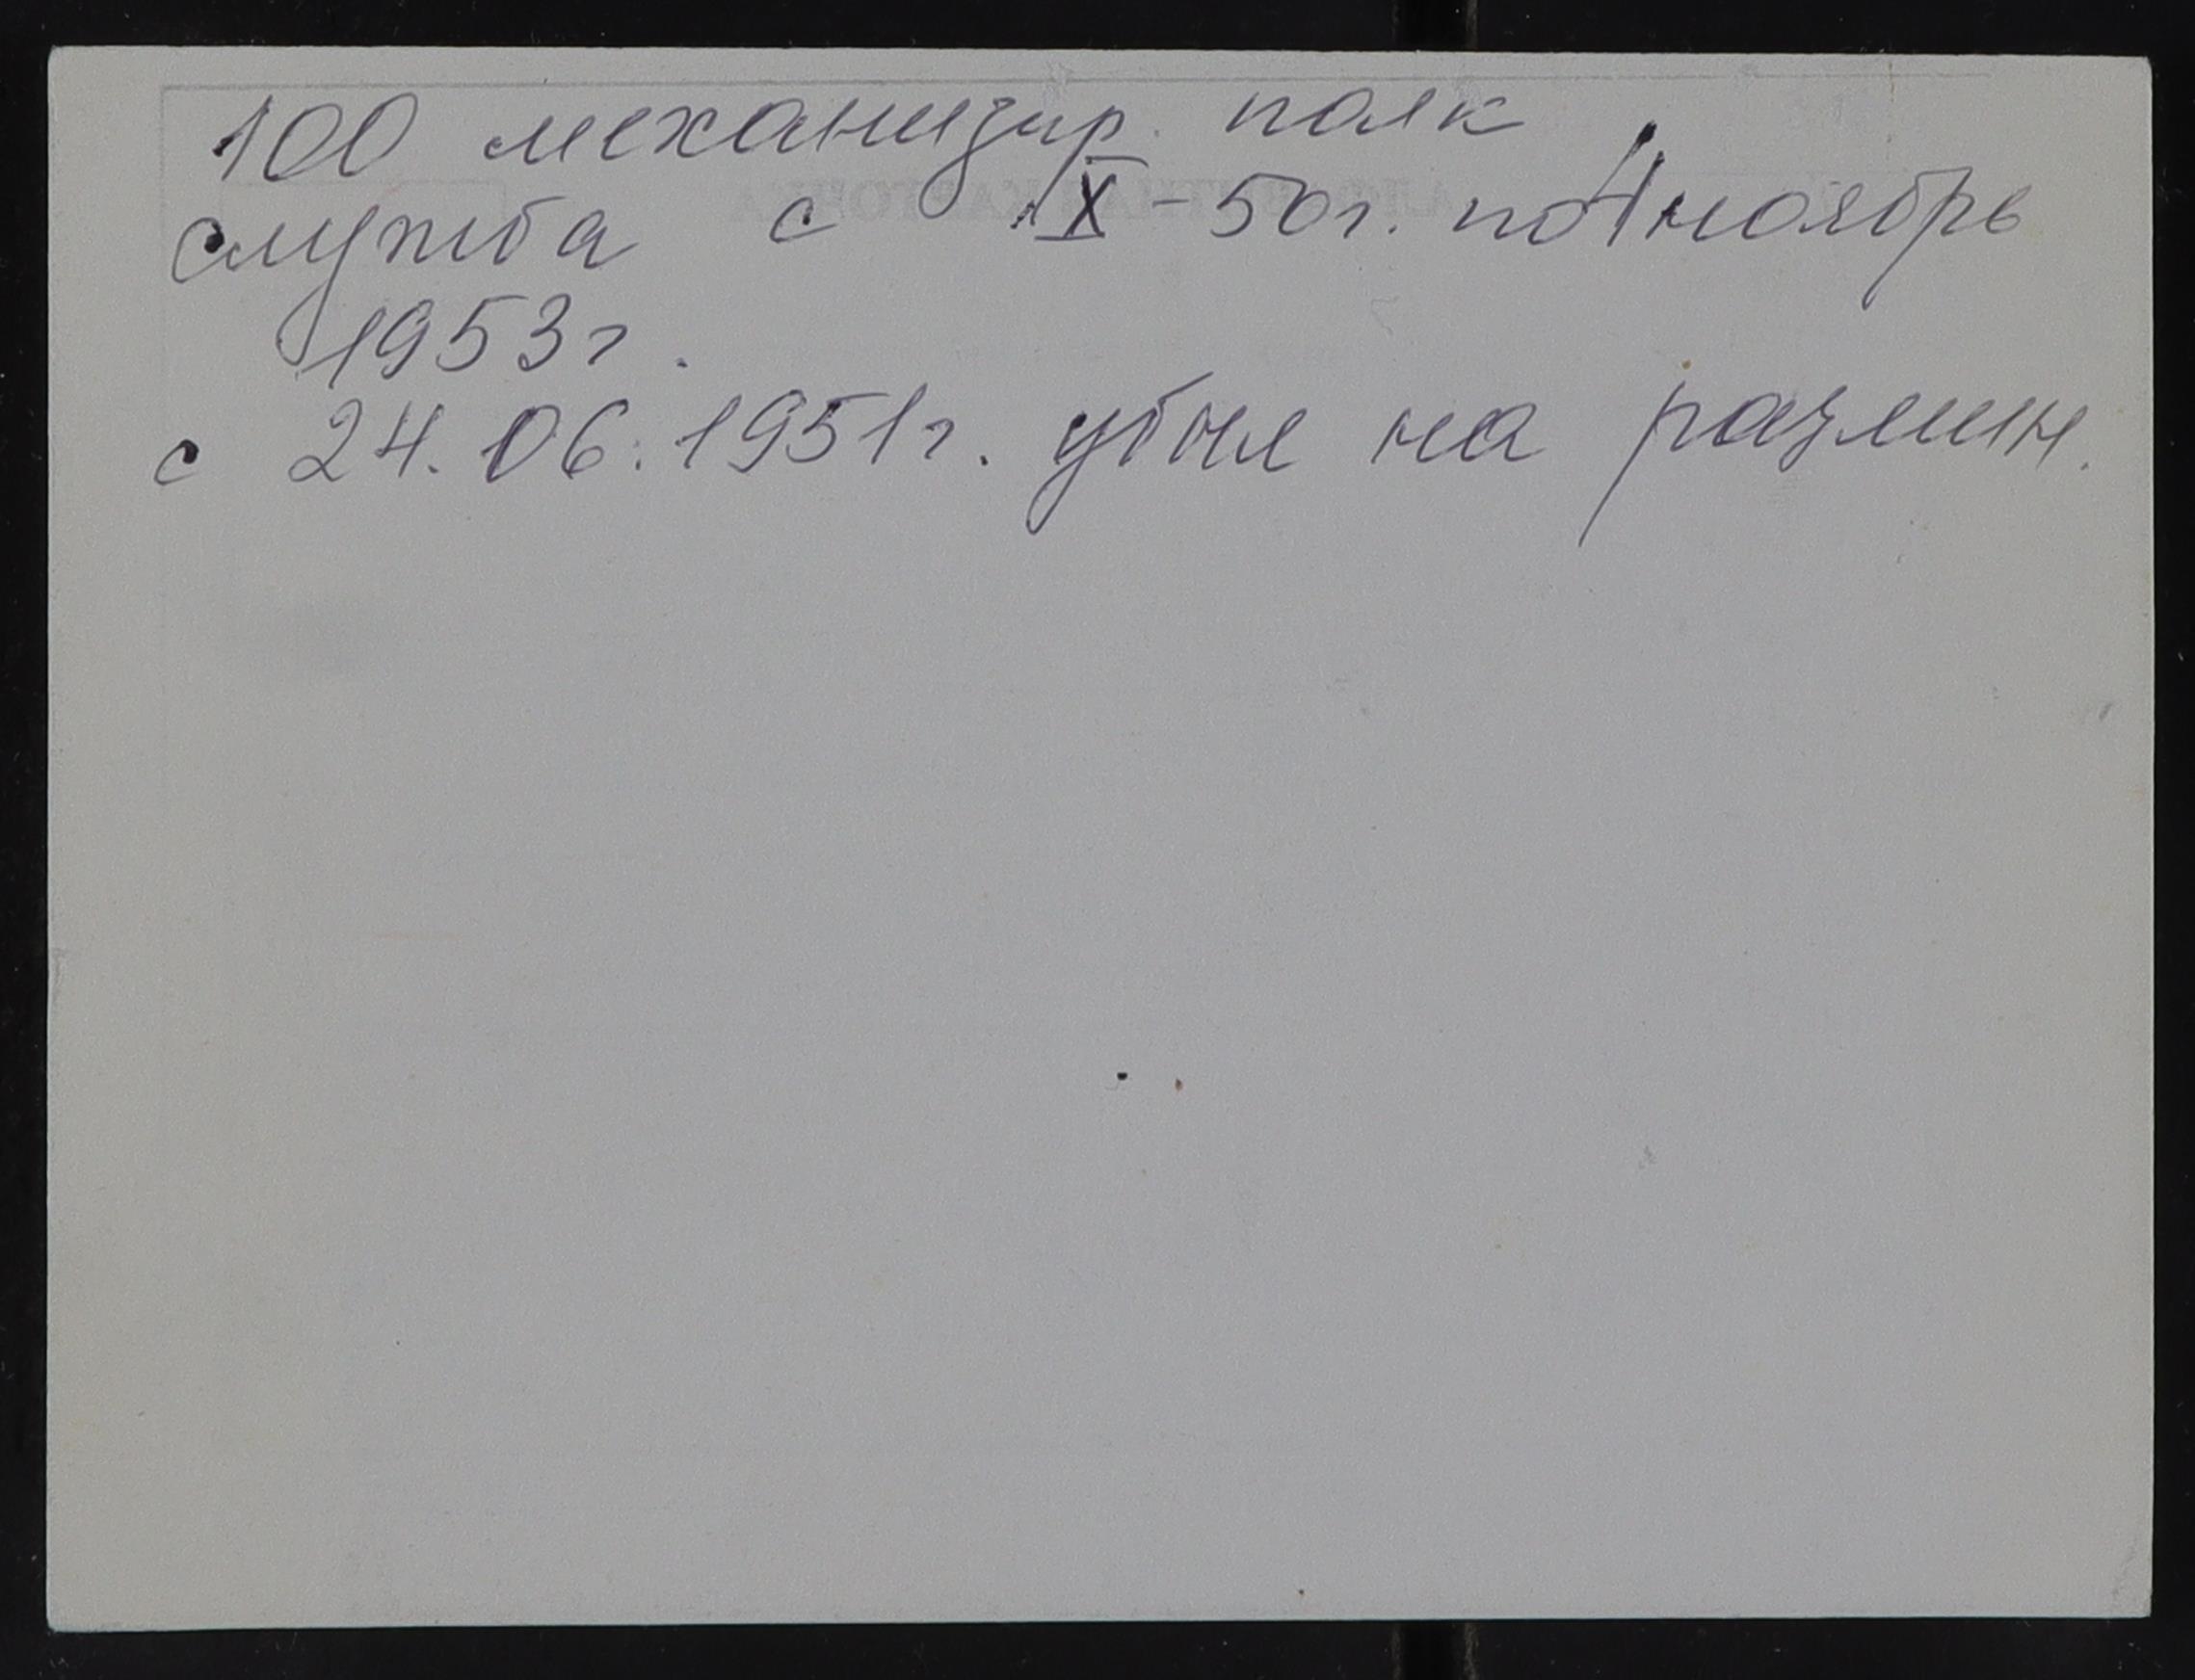 100 механизир. полк
служба с X-50г. по 4 ноябрь
1953г.
с 24.06.1951г. убыл на размин.